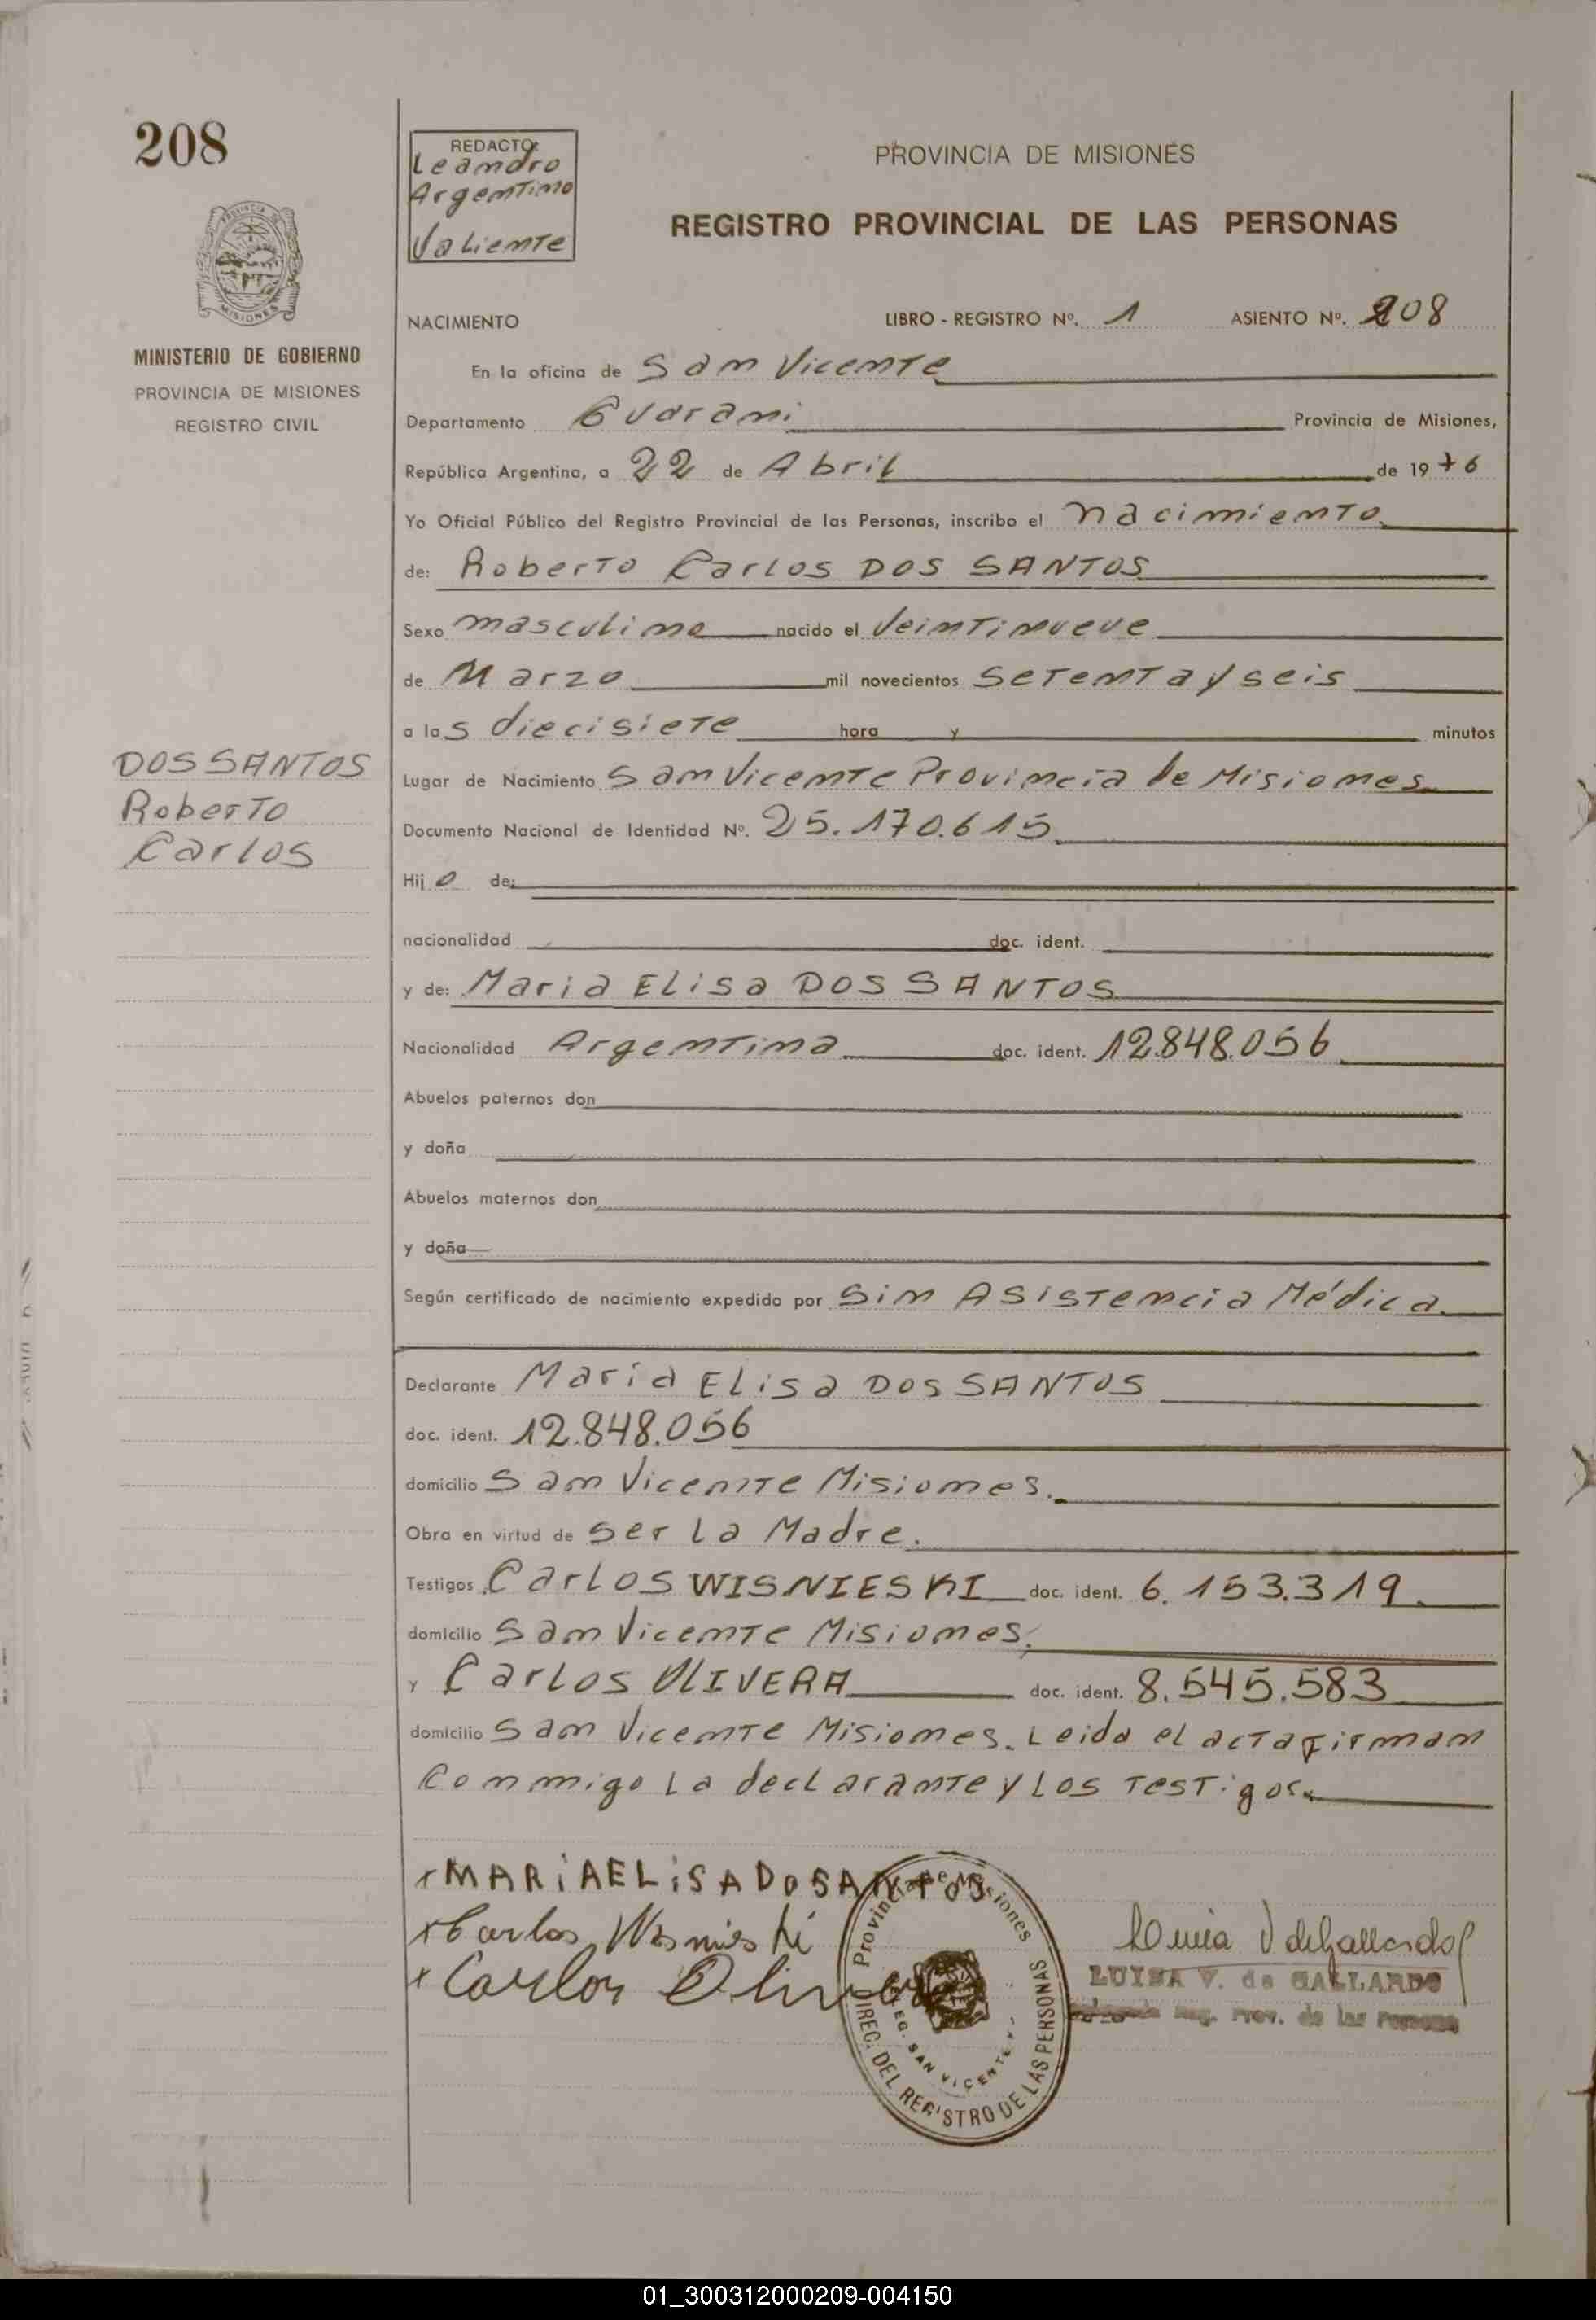 208
REDACTO:
Leandro
Argentino
Valiente
PROVINCIA DE MISIONES
REGISTRO PROVINCIAL DE LAS PERSONAS
MISIONES
MINISTERIO DE GOBIERNO
PROVINCIA DE MISIONES
REGISTRO CIVIL
NACIMIENTO LIBRO - REGISTRO Nº. 1 ASIENTO Nº. 208
En la oficina de San Vicente
Departamento Guarani Provincia de Misiones,
República Argentina, a 22 de Abril de 1976
Yo Oficial Público del Registro Provincial de las Personas, inscribo el nacimiento
de: Roberto Carlos DOS SANTOS
Sexo masculino nacido el Veintinueve
de Marzo mil novecientos setenta y seis
a las diecisiete hora y minutos
DOS SANTOS
Roberto
Carlos
Lugar de Nacimiento San Vicente Provincia de Misiones
Documento Nacional de Identidad Nº. 25.170.615
Hijo de:
nacionalidad doc. ident.
y de: Maria Elisa DOS SANTOS
Nacionalidad Argentina doc. ident. 12.848.056
Abuelos paternos don
y doña
Abuelos maternos don
y doña
Según certificado de nacimiento expedido por Sin Asistencia Médica
Declarante Maria Elisa DOS SANTOS
doc. ident. 12.848.056
domicilio San Vicente Misiones.
Obra en virtud de ser la Madre.
Testigos Carlos WISNIESKI doc. ident. 6.153.319.
domicilio San Vicente Misiones.
y Carlos OLIVERA doc. ident. 8.545.583
domicilio San Vicente Misiones. Leida el acta firman
conmigo la declarante y los testigos.
MARiAELiSADOSANTOS
Carlos Wisnieski
Carlos Olivera
Provincia de Misiones
DIREC. DEL REGISTRO DE LAS PERSONAS
SAN VICENTE
LUISA V. de GALLARDO
Reg. Prov. de las Personas
01_300312000209-004150